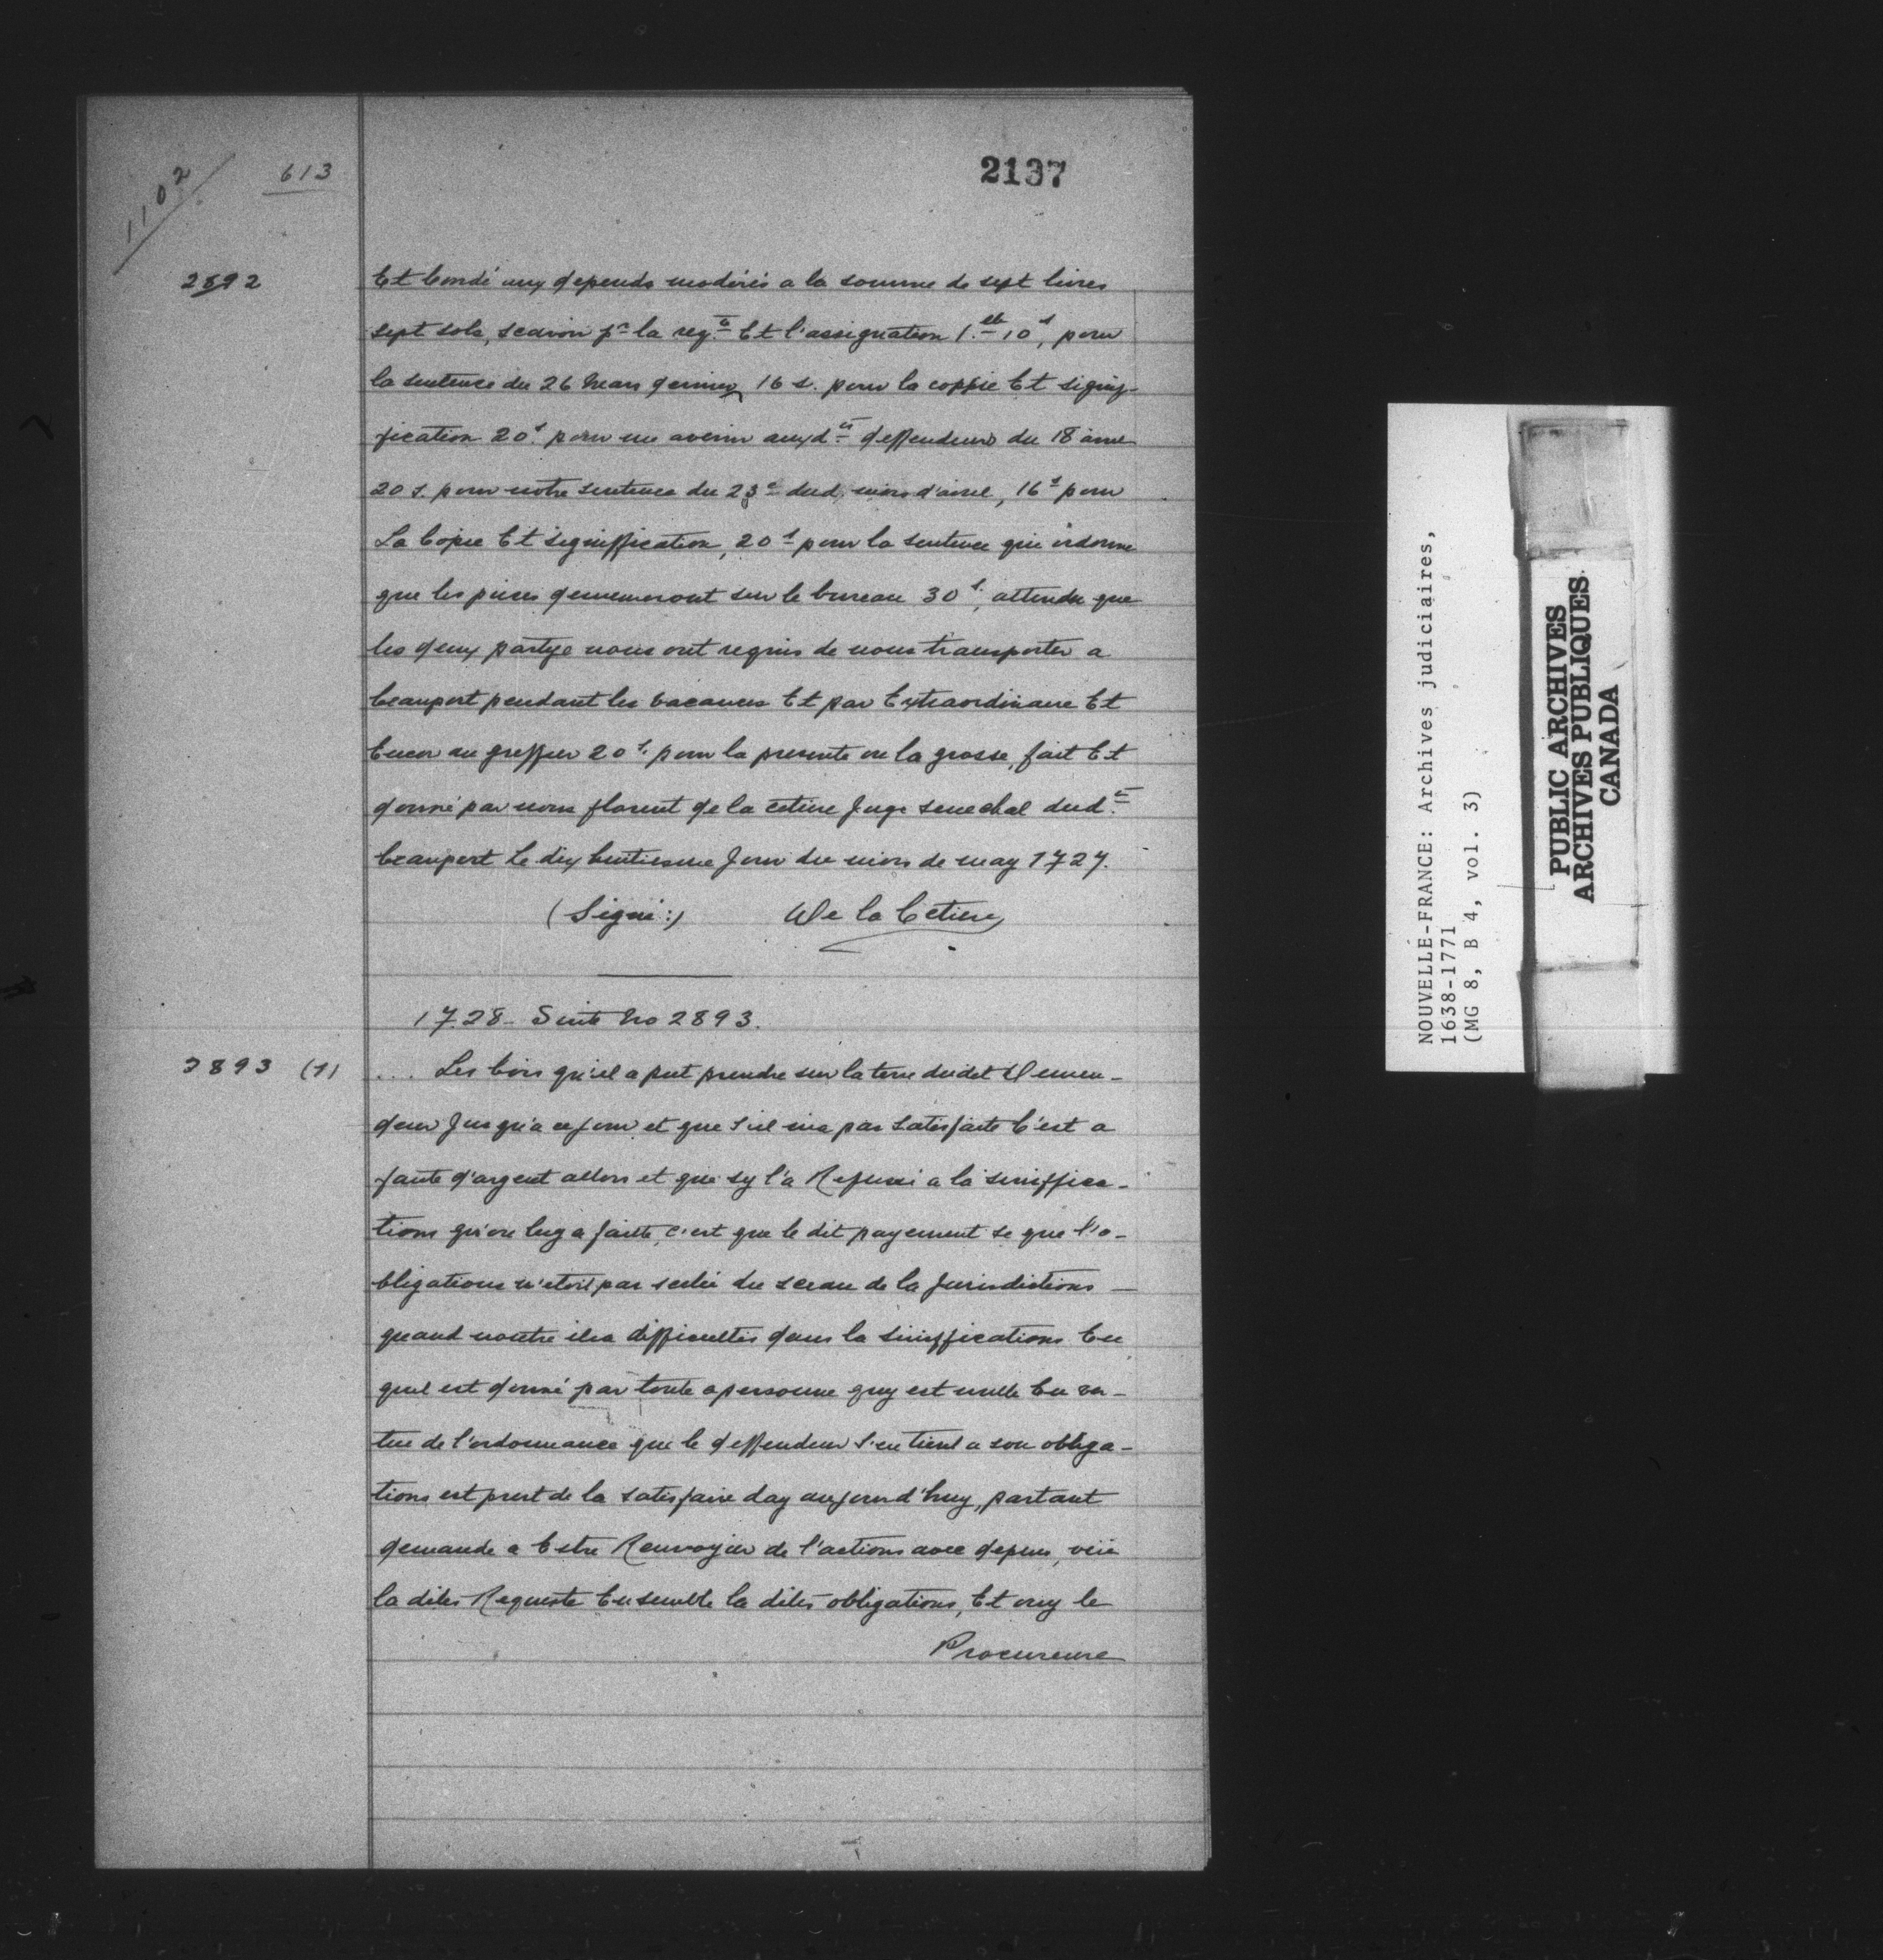 1102
613
2137
2892
Et Condé aux depends modérés a la somme de sept livres
sept sols, scavoir pr la reqte Et l'assignation 1.lt 10s, pour
la sentence du 26 mars dernier 16 s. pour la coppie Et signiy-
fication 20s. pour un avenir auxdts deffendeurs du 18 avril
20 s. pour notre sentence du 23e dud. mois d'avril, 16s pour
La Copie Et signiffication, 20s pour la sentence qui ordonne
que les pieces demeureront sur le bureau 30s, attendu que
les deux partye nous ont requis de nous transporter a
beauport pendant les vacances Et par Extraordinaire Et
Encor au greffier 20s. pour la presente ou la grosse, fait Et
donné par nous florent de la cetiere Juge senechal dudt
beauport Le dix huitiesme Jour du mois de may 1727.
(Signé:) De la Cetiere
1728 - Suite No 2893.
2893 (1)
... Les bois qu'il a put prendre sur la terre dudet Demen-
deur Jusqu'a ce jour et que s'il n'a pas satisfaite C'est a
faute d'argent allors et que sy l'a Refusé a la siniffica-
tions qu'on luy a faitte, c'est que le dit payement se que l'o-
bligations n'etoit pas sceliée du sceau de la Jurisdictions -
quand noutre il a difficultés dans la siniffications En
quil est donné par toute a personne quy est nulle En ver-
tue de l'ordonnance que le deffendeur s'en tient a son obliga-
tions est prest de la satisfaire day aujourd'huy, partant
demande a Estre Renvoyiés de l'actions avec depens, veüe
la dites Requeste Ensemble la dites obligations, Et ouy le
Procureure
NOUVELLE-FRANCE: Archives judiciaires,
1638-1771
(MG 8, B 4, vol. 3)
PUBLIC ARCHIVES
ARCHIVES PUBLIQUES
CANADA